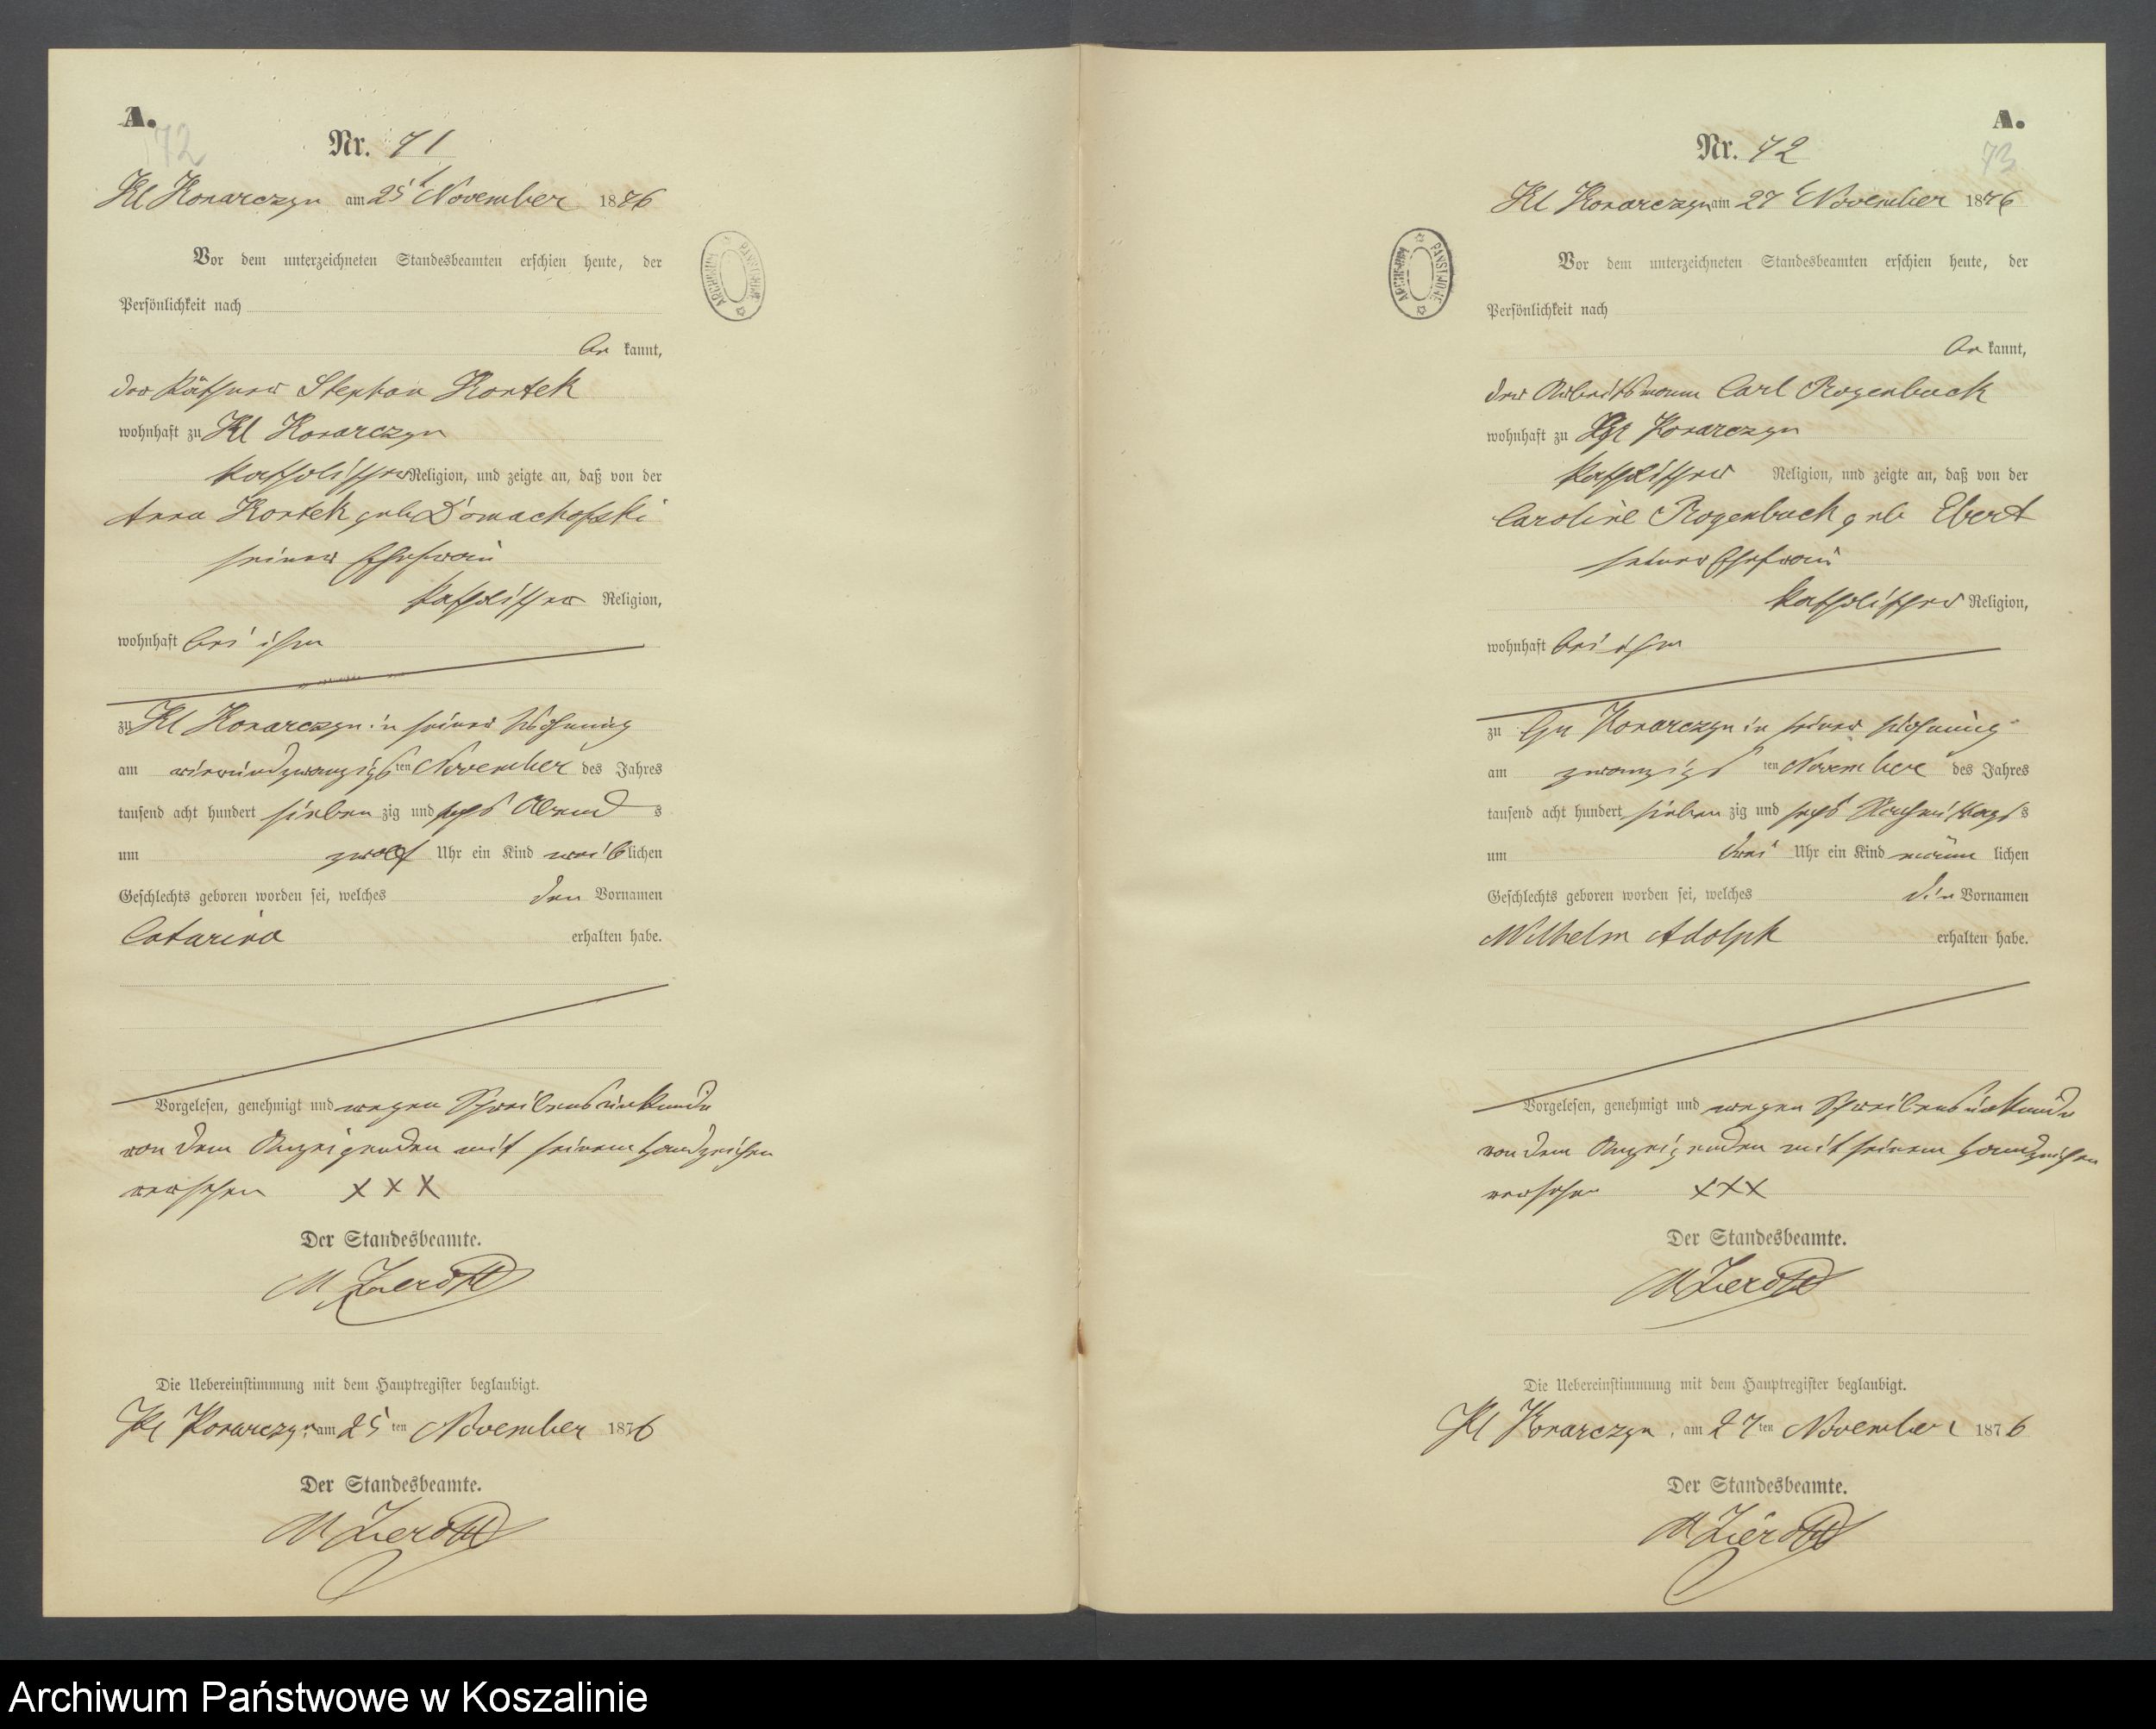 A.
72
Nr. 71
Kl Konarczyn am 25t November 1876
Vor dem unterzeichneten Standesbeamten erschien heute, der
Persönlichkeit nach
be kannt,
der Käthner Stephan Kontek
wohnhaft zu Kl Konarczyn
katholischer Religion, und zeigte an, daß von der
Anna Kontek geb Domachofski
seiner Ehefrau
katholischer Religion,
wohnhaft bei ihm
zu Kl Konarczyn in seiner Wohnung
am vierundzwanzigsten November des Jahres
tausend acht hundert sieben zig und sechs Abend s
um zwölf Uhr ein Kind weiblichen
Geschlechts geboren worden sei, welches den Vornamen
Catarina erhalten habe.
Vorgelesen, genehmigt und wegen Schreibensunkunde
von dem Anzeigenden mit seinem Handzeichen
versehen XXX
Der Standesbeamte.
M Zierott
Die Uebereinstimmung mit dem Hauptregister beglaubigt.
Kl Konarczyn am 25ten November 1876
Der Standesbeamte.
M Zierott
A.
73
Nr. 72
Kl Konarczyn am 27t November 1876
Vor dem unterzeichneten Standesbeamten erschien heute, der
Persönlichkeit nach
be kannt,
der Arbeitsmann Carl Rogenbuck
wohnhaft zu Gr Konarczyn
katholischer Religion, und zeigte an, daß von der
Caroline Rogenbuck geb Ebert
seiner Ehefrau
katholischer Religion,
wohnhaft bei ihm
zu Gr Konarczyn in seiner Wohnung
am zwanzigsten November des Jahres
tausend acht hundert sieben zig und sechs Nachmittags
um drei Uhr ein Kind männ lichen
Geschlechts geboren worden sei, welches die Vornamen
Wilhelm Adolph erhalten habe.
Vorgelesen, genehmigt und wegen Schreibensunkunde
von dem Anzeigenden mit seinem Handzeichen
versehen XXX
Der Standesbeamte.
M Zierott
Die Uebereinstimmung mit dem Hauptregister beglaubigt.
Kl Konarczyn, am 27ten November 1876
Der Standesbeamte.
M Zierott
ARCHIWUM PAŃSTWOWE
ARCHIWUM PAŃSTWOWE
Archiwum Państwowe w Koszalinie